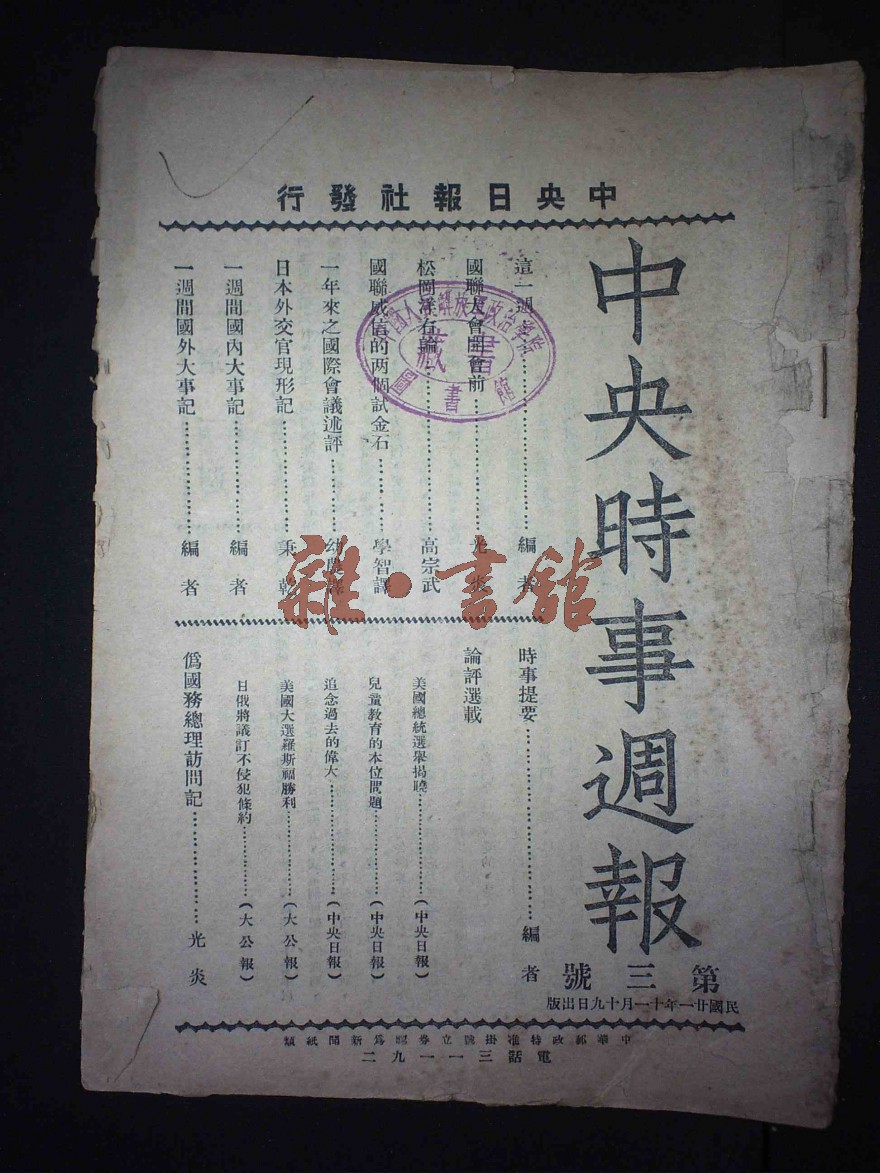 中央日報社發行
中央時事週報
第三號
民國廿一年十一月十九日出版
這一週⋯⋯編者
國聯大會開會前⋯⋯光炎
松岡洋右論⋯⋯高宗武
國聯威信的两個試金石⋯⋯學智譯
一年來之國際會議述評⋯⋯幼農譯
日本外交官現形記⋯⋯秉乾
一週間國內大事記⋯⋯編者
一週間國外大事記⋯⋯編者
時事提要⋯⋯編者
論評選載
美國總統選舉揭曉⋯⋯(中央日報)
兒童教育的本位問題⋯⋯(中央日報)
追念過去的偉大⋯⋯(中央日報)
美國大選羅斯福勝利⋯⋯(大公報)
日俄將議訂不侵犯條約⋯⋯(大公報)
僞國務總理訪問記⋯⋯光炎
中華郵政特准掛號立券認爲新聞紙類
電話三一一九二
政治學院
圖書館
藏書
雜·書舘